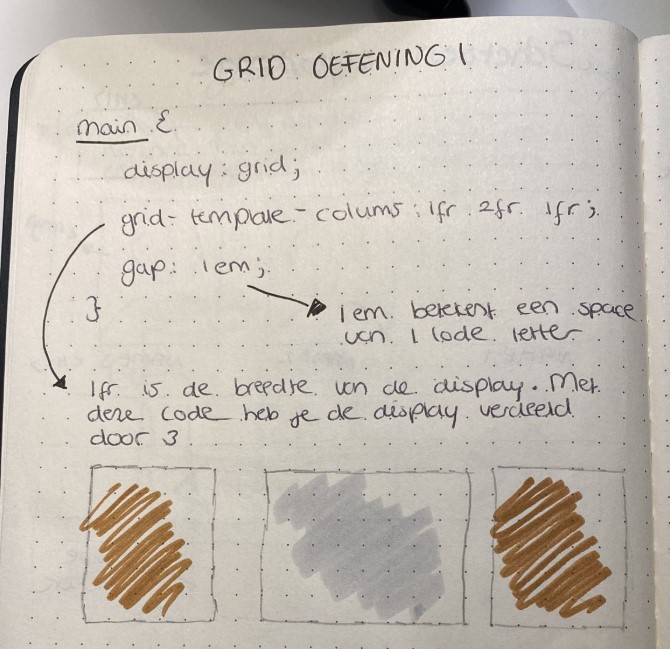 GRID OEFENING 1
main {
display: grid;
grid-template-colums: 1fr 2fr 1fr;
gap: 1em;
}
1em betekent een space
van 1 code letter
1fr is de breedte van de display. Met
deze code heb je de display verdeeld
door 3